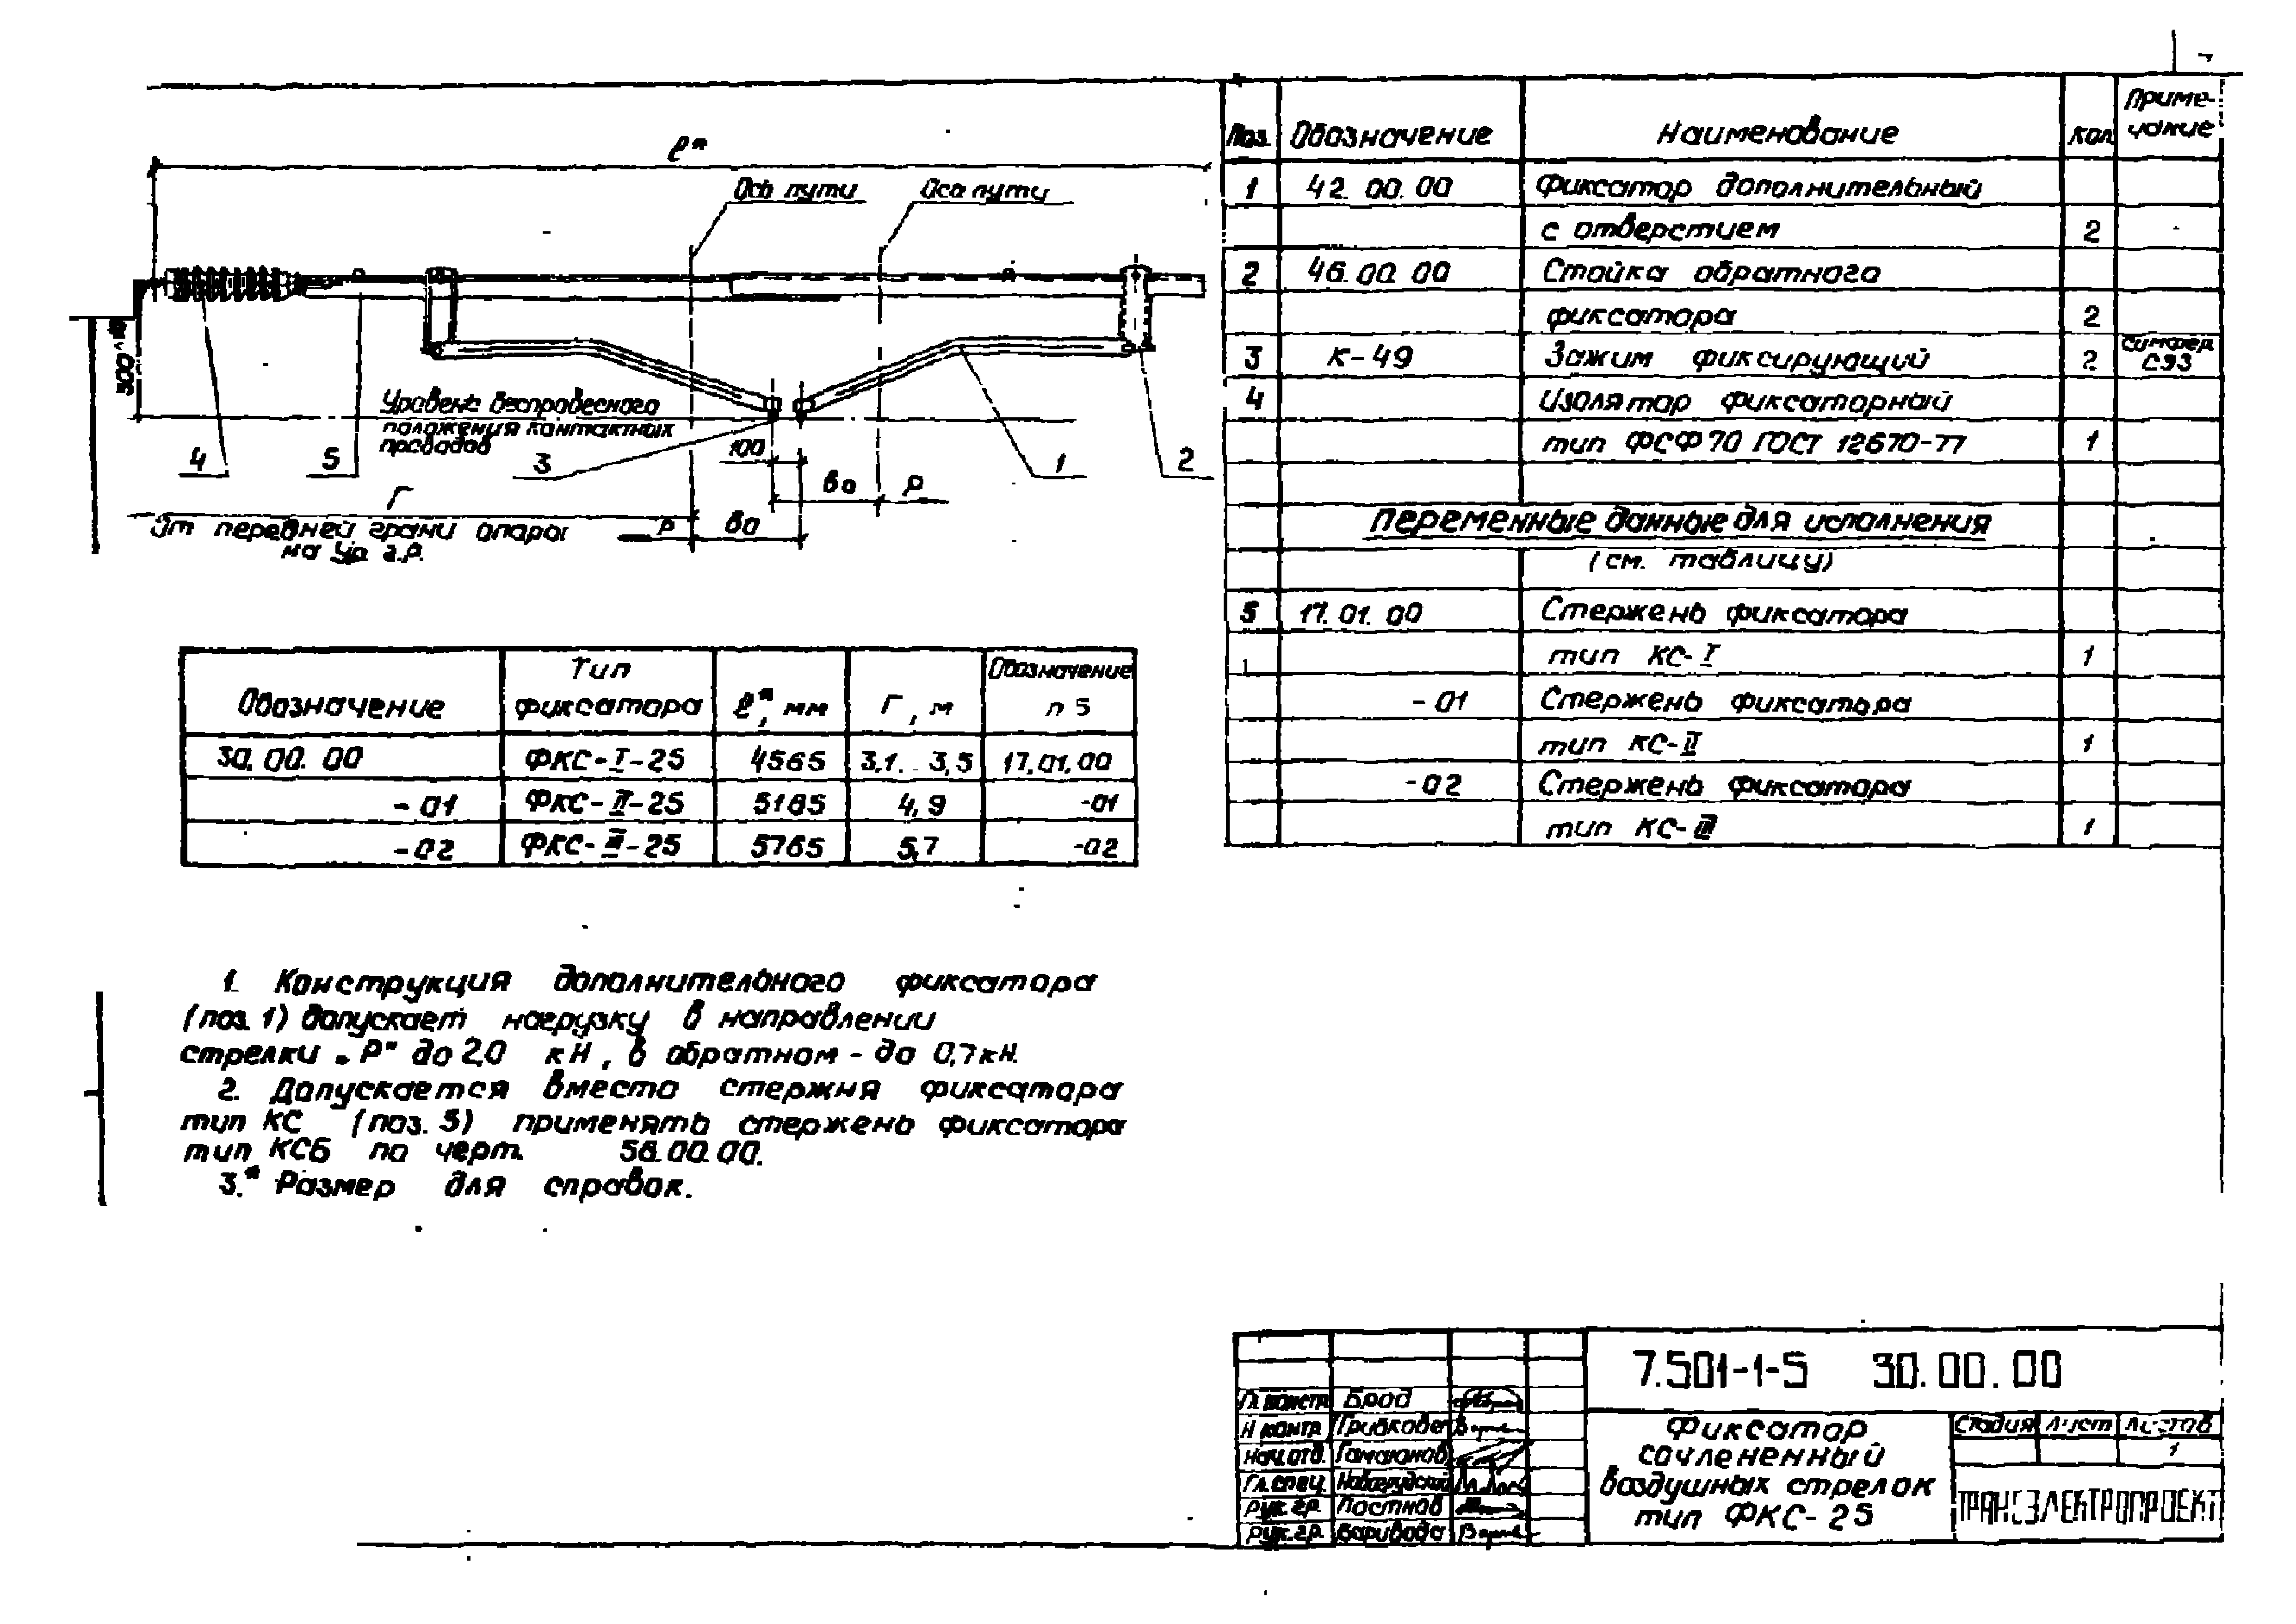 ℓ*
Ось пути
Ось пути
Уровень беспровесного
положения контактных
проводов
4
5
3
100
1
2
во
Р
Г
Р
во
От передней грани опоры
на ур. г.р.
Обозначение
Тип фиксатора
ℓ*, мм
Г, м
Обозначение п 5
30.00.00 ФКС-I-25 4565 3,1...3,5 17.01.00
-01 ФКС-II-25 5165 4,9 -01
-02 ФКС-III-25 5765 5,7 -02
1. Конструкция дополнительного фиксатора
(поз. 1) допускает нагрузку в направлении
стрелки „Р" до 2,0 кН, в обратном - до 0,7 кН.
2. Допускается вместо стержня фиксатора
тип КС (поз. 5) применять стержень фиксатора
тип КСБ по черт. 56.00.00.
3.* Размер для справок.
Поз. Обозначение Наименование Кол. Приме-
чание
1 42.00.00 Фиксатор дополнительный
с отверстием 2
2 46.00.00 Стойка обратного
фиксатора 2
3 К-49 Зажим фиксирующий 2 СЭЗ
4 Изолятор фиксаторный
тип ФСФ70 ГОСТ 12670-77 1
Переменные данные для исполнения
(см. таблицу)
5 17.01.00 Стержень фиксатора
тип КС-I 1
-01 Стержень фиксатора
тип КС-II 1
-02 Стержень фиксатора
тип КС-III 1
7.501-1-5 30.00.00
Гл. констр. Брод
Н контр. Грибкова
Нач. отд. Гамаюнов
Гл. спец. Новогрудский
Рук. гр. Постнов
Рук. гр. Варивода
Фиксатор
сочлененный
воздушных стрелок
тип ФКС-25
Стадия Лист Листов
1
ТРАНСЭЛЕКТРОПРОЕКТ